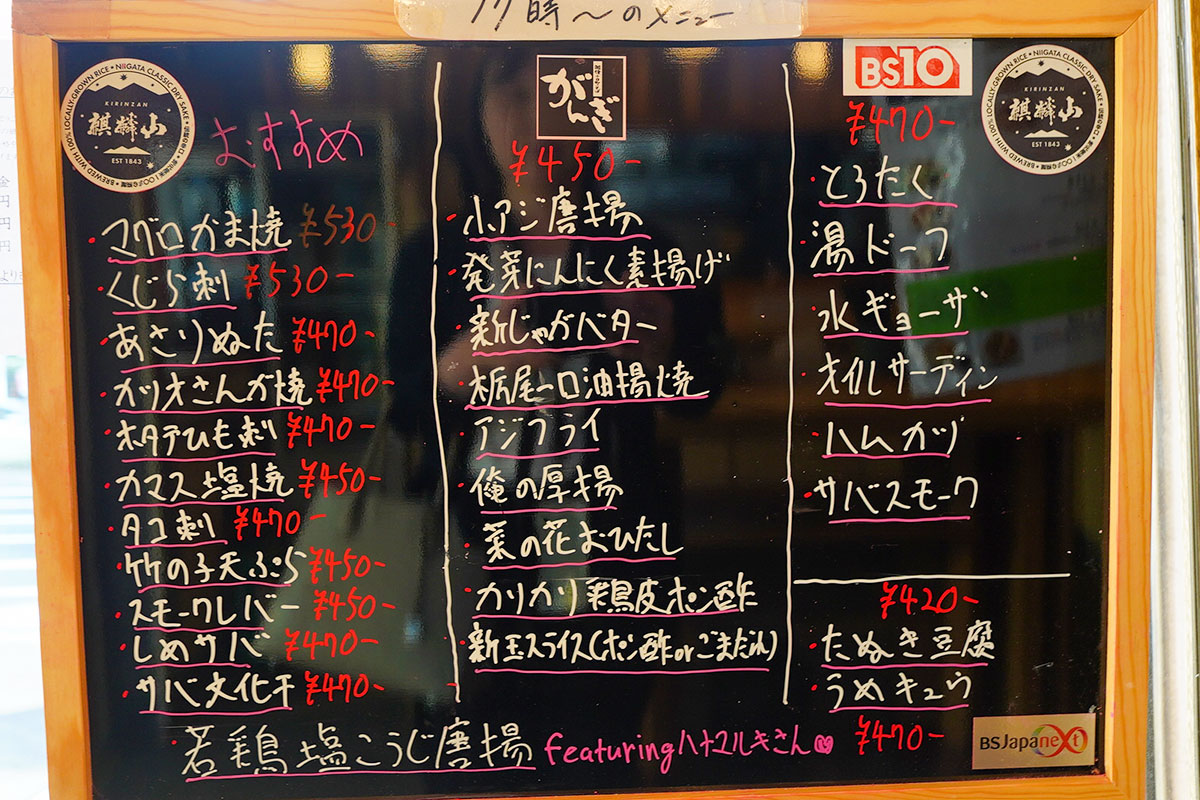 17時〜のメニュー
KIRINZAN
麒麟山
EST 1843
BREWED WITH 100% LOCALLY-GROWN RICE ★ NIIGATA CLASSIC DRY SAKE
おすすめ
・マグロかま焼 ¥530-
・くじら刺 ¥530-
・あさりぬた ¥470-
・カツオさんが焼 ¥470-
・ホタテひも刺 ¥470-
・カマス塩焼 ¥450-
・タコ刺 ¥470-
・竹の子天ぷら ¥450-
・スモークレバー ¥450-
・しめサバ ¥470-
・サバ文化干 ¥470-
がんぎ
¥450-
・小アジ唐揚
・発芽にんにく素揚げ
・新じゃがバター
・栃尾一口油揚焼
・アジフライ
・俺の厚揚
・菜の花おひたし
・カリカリ鶏皮ポン酢
・新玉スライス(ポン酢orごまだれ)
BS10
¥470-
・とろたく
・湯ドーフ
・水ギョーザ
・オイルサーディン
・ハムカツ
・サバスモーク
¥420-
・たぬき豆腐
・うめキュウ
KIRINZAN
麒麟山
EST 1843
BREWED WITH 100% LOCALLY-GROWN RICE ★ NIIGATA CLASSIC DRY SAKE
・若鶏塩こうじ唐揚 featuringハナマルキさん ¥470-
BSJapanext